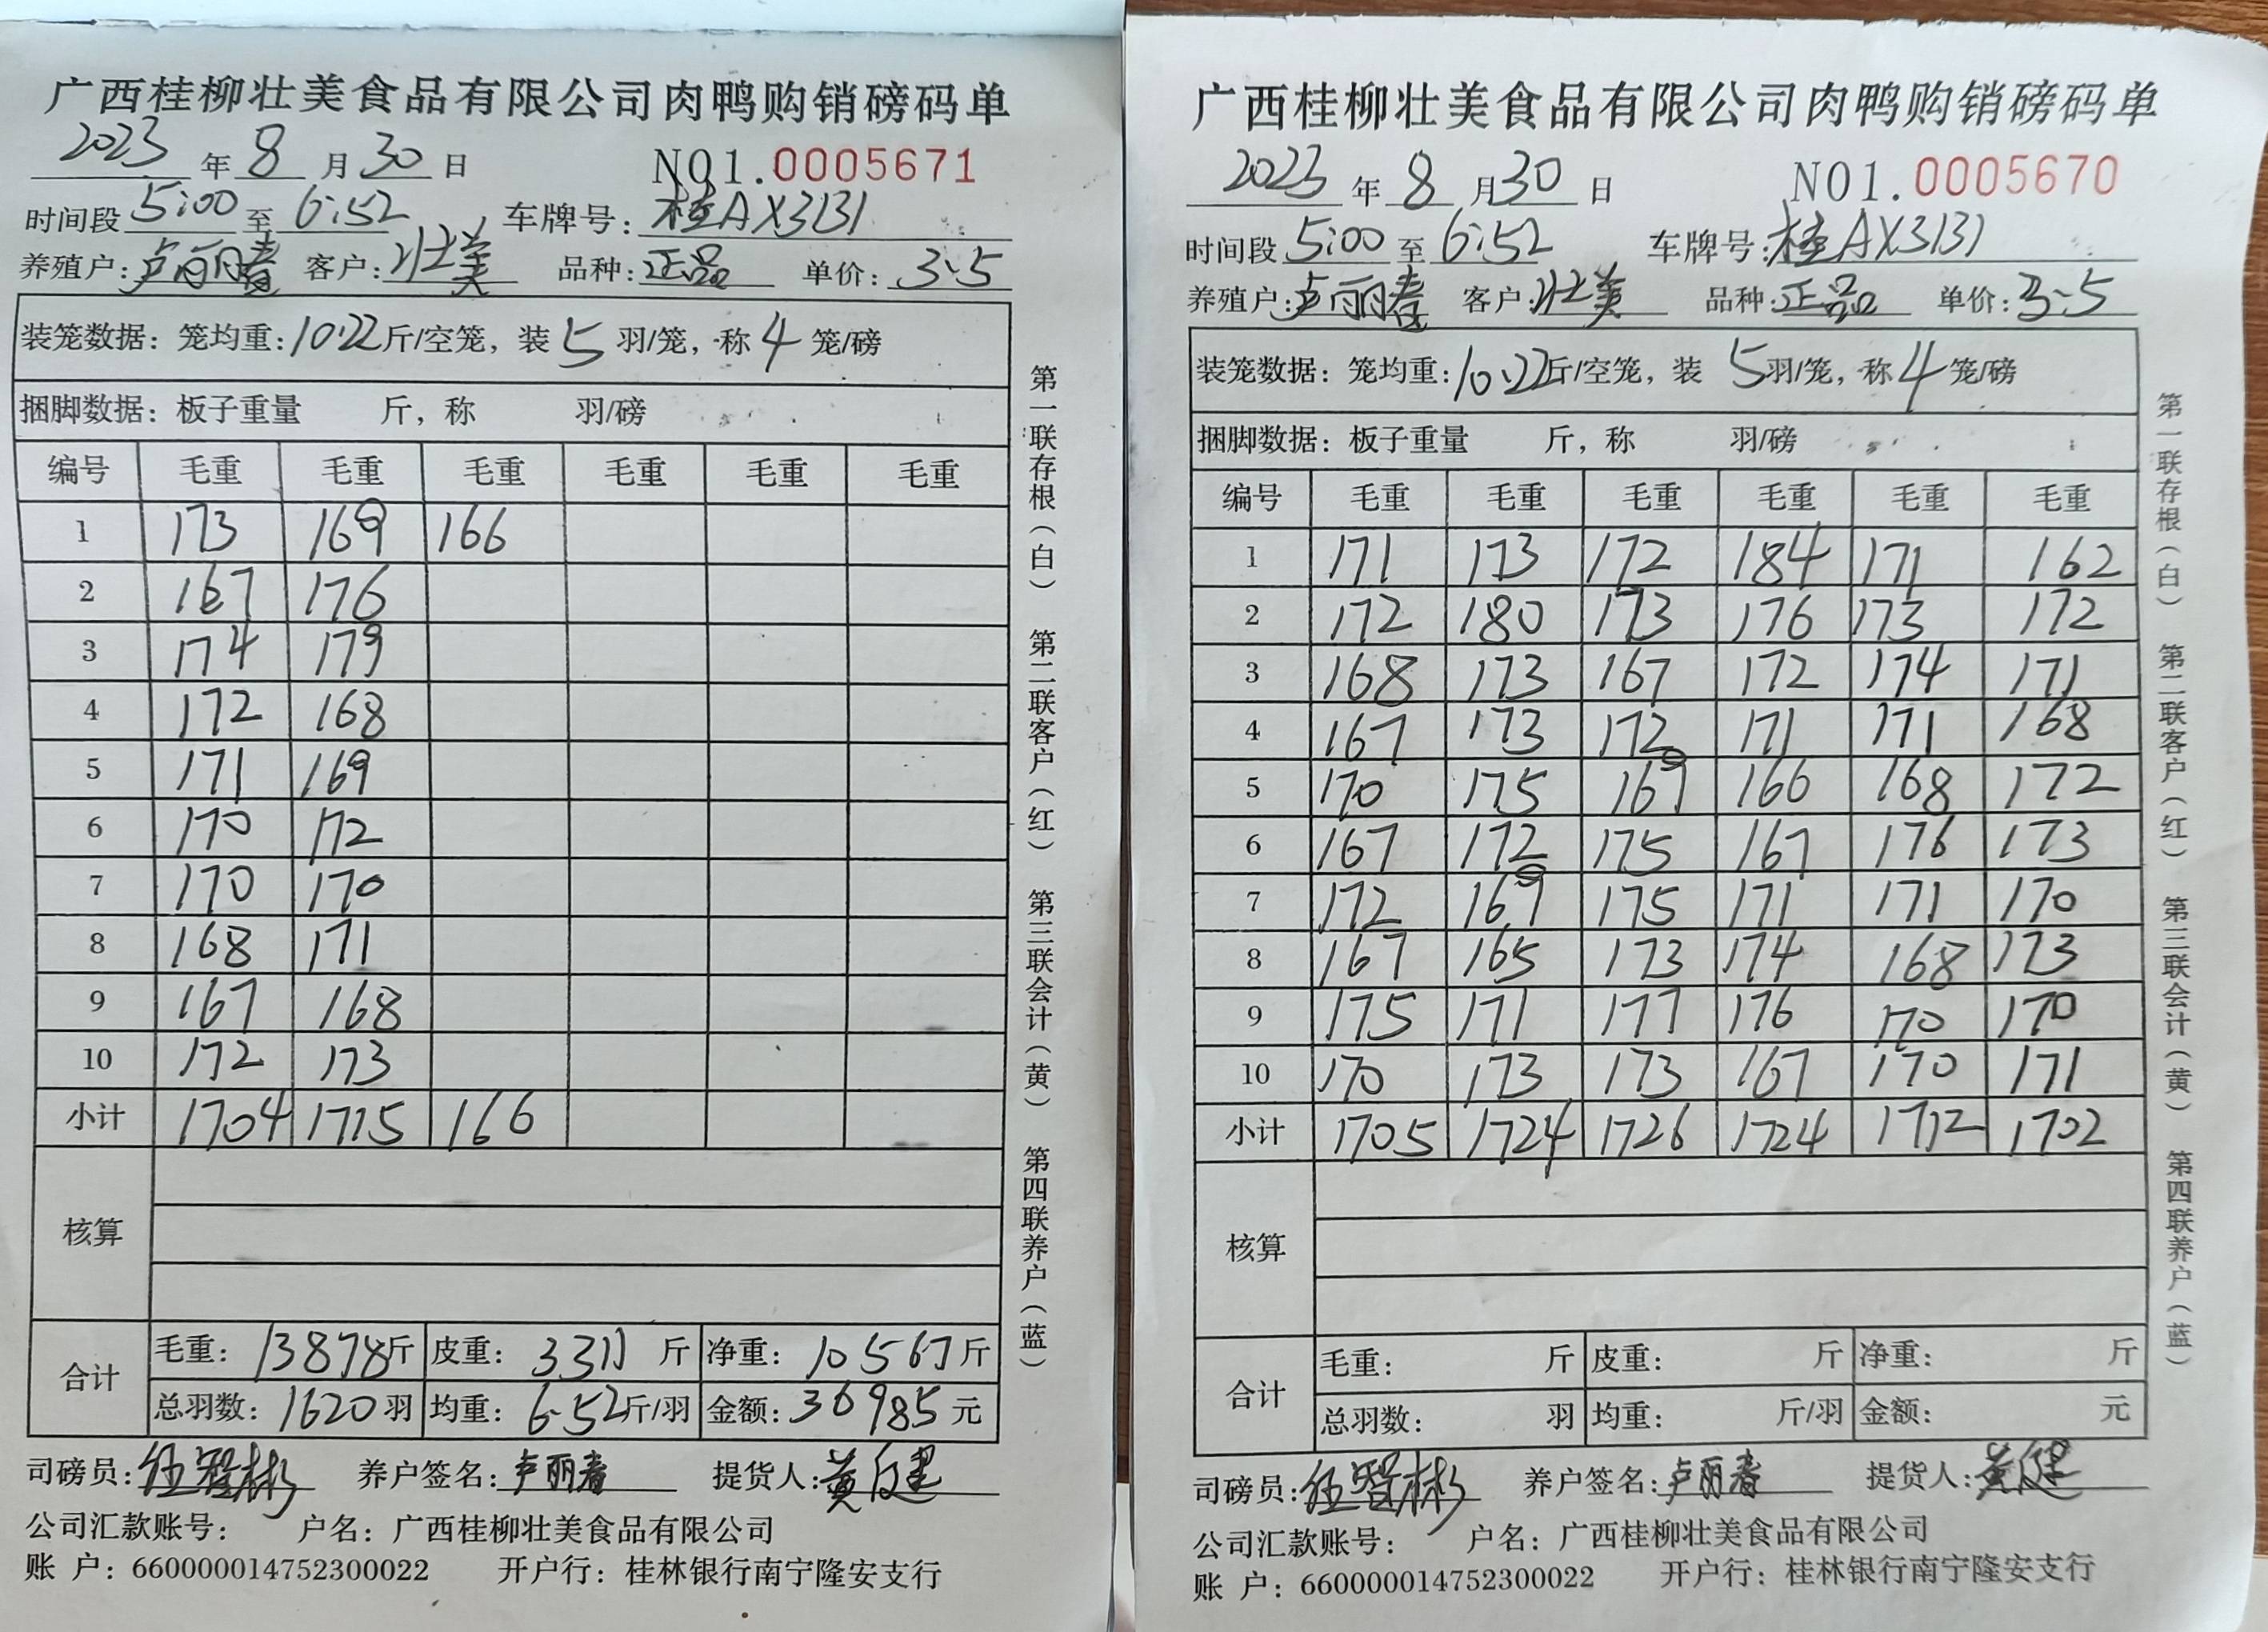 广西桂柳壮美食品有限公司肉鸭购销磅码单
2023 年 8 月 30 日 NO1.0005671
时间段 5:00 至 6:52 车牌号: 桂AX3131
养殖户: 卢丽春 客户: 壮美 品种: 正品 单价: 3.5
装笼数据: 笼均重: 10.22 斤/空笼, 装 5 羽/笼, 称 4 笼/磅
捆脚数据: 板子重量 斤, 称 羽/磅
编号 毛重 毛重 毛重 毛重 毛重 毛重
1 173 169 166
2 167 176
3 174 179
4 172 168
5 171 169
6 170 172
7 170 170
8 168 171
9 167 168
10 172 173
小计 1704 1715 166
核算
合计 毛重: 13878 斤 皮重: 3311 斤 净重: 10567 斤
总羽数: 1620 羽 均重: 6.52 斤/羽 金额: 36985 元
司磅员: 伍智彬 养户签名: 卢丽春 提货人: 黄健
公司汇款账号: 户名: 广西桂柳壮美食品有限公司
账 户: 660000014752300022 开户行: 桂林银行南宁隆安支行
第一联存根(白) 第二联客户(红) 第三联会计(黄) 第四联养户(蓝)
广西桂柳壮美食品有限公司肉鸭购销磅码单
2023 年 8 月 30 日 NO1.0005670
时间段 5:00 至 6:52 车牌号: 桂AX3131
养殖户: 卢丽春 客户: 壮美 品种: 正品 单价: 3.5
装笼数据: 笼均重: 10.22 斤/空笼, 装 5 羽/笼, 称 4 笼/磅
捆脚数据: 板子重量 斤, 称 羽/磅
编号 毛重 毛重 毛重 毛重 毛重 毛重
1 171 173 172 184 171 162
2 172 180 173 176 173 172
3 168 173 167 172 174 171
4 167 173 172 171 171 168
5 170 175 169 166 168 172
6 167 172 175 167 176 173
7 172 169 175 171 171 170
8 167 165 173 174 168 173
9 175 171 177 176 170 170
10 170 173 173 167 170 171
小计 1705 1724 1726 1724 1712 1702
核算
合计 毛重: 斤 皮重: 斤 净重: 斤
总羽数: 羽 均重: 斤/羽 金额: 元
司磅员: 伍智彬 养户签名: 卢丽春 提货人: 黄健
公司汇款账号: 户名: 广西桂柳壮美食品有限公司
账 户: 660000014752300022 开户行: 桂林银行南宁隆安支行
第一联存根(白) 第二联客户(红) 第三联会计(黄) 第四联养户(蓝)